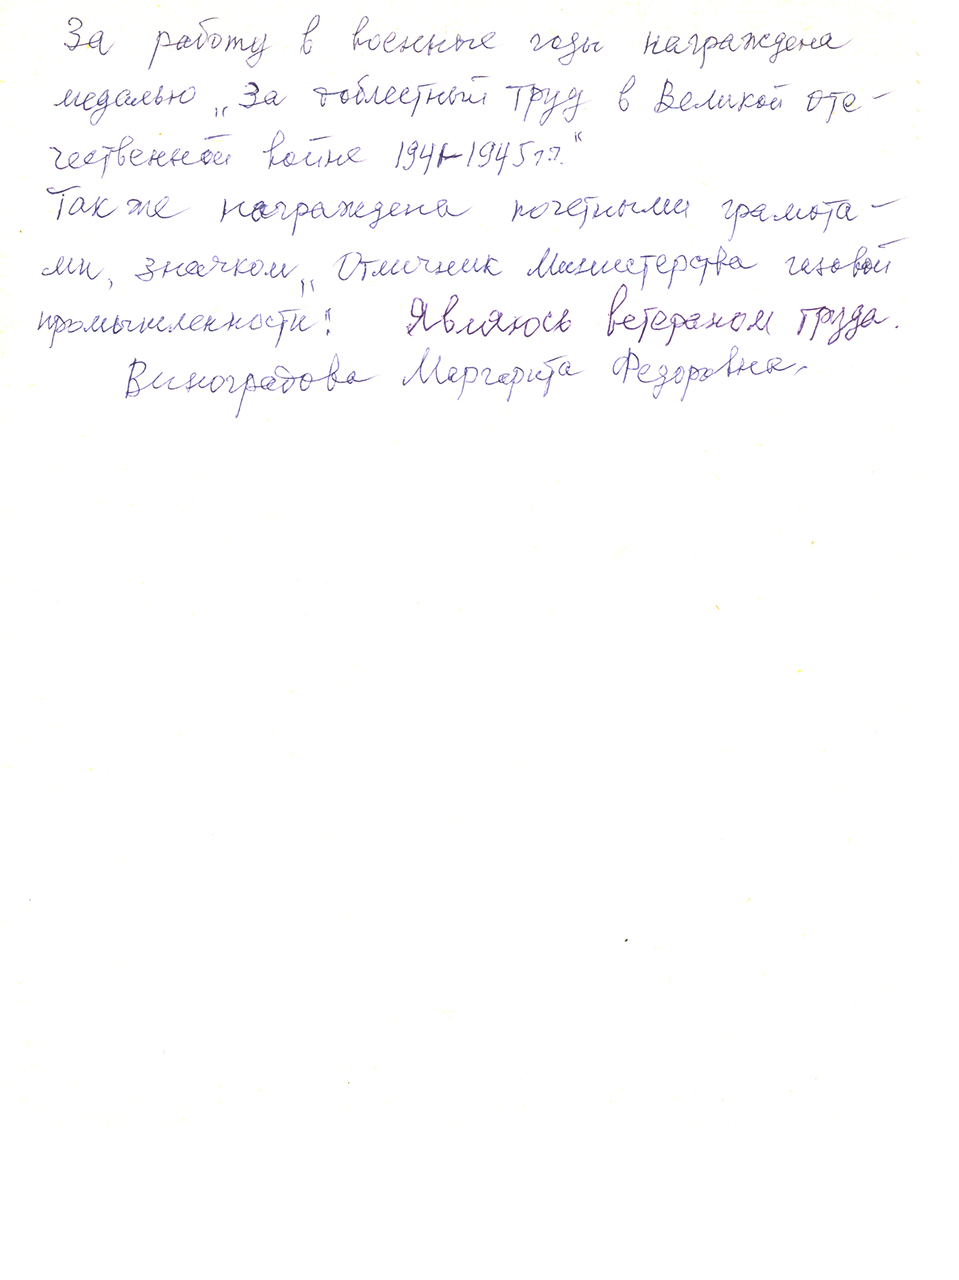 За работу в военные годы награждена
медалью „За доблестный труд в Великой оте-
чественной войне 1941-1945 г.г."
Также награждена почетными грамота-
ми, значком „Отличник Министерства газовой
промышленности". Являюсь ветераном труда.
Виноградова Маргарита Федоровна.